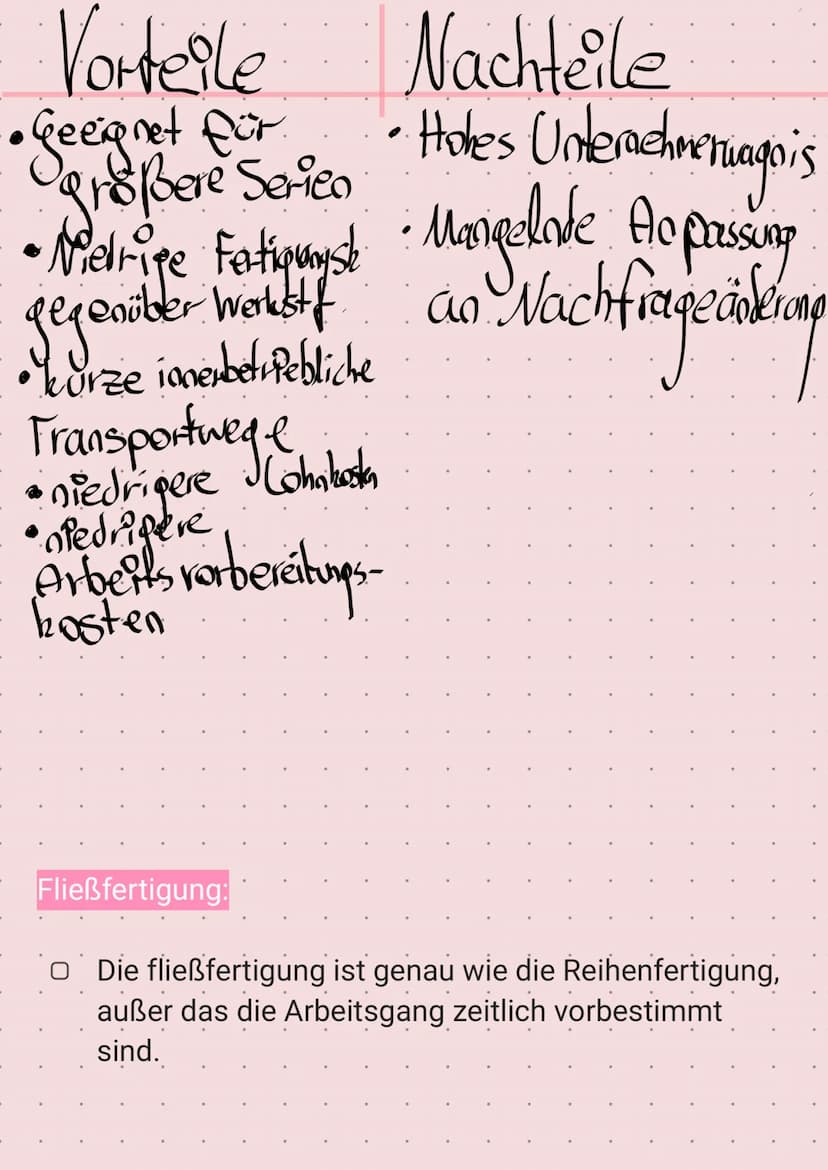 Vorteile
• Geeignet für
größere Serien
• Niedrige Fertigungsk
gegenüber Werkstf.
• kürze innerbetriebliche
Transportwege
• niedrigere Lohnkosten
• niedrigere
Arbeitsvorbereitungs-
kosten
Nachteile
• Hohes Unternehmerwagnis
• Mangelnde Anpassung
an Nachfrageänderung
Fließfertigung:
Die fließfertigung ist genau wie die Reihenfertigung,
außer das die Arbeitsgang zeitlich vorbestimmt
sind.